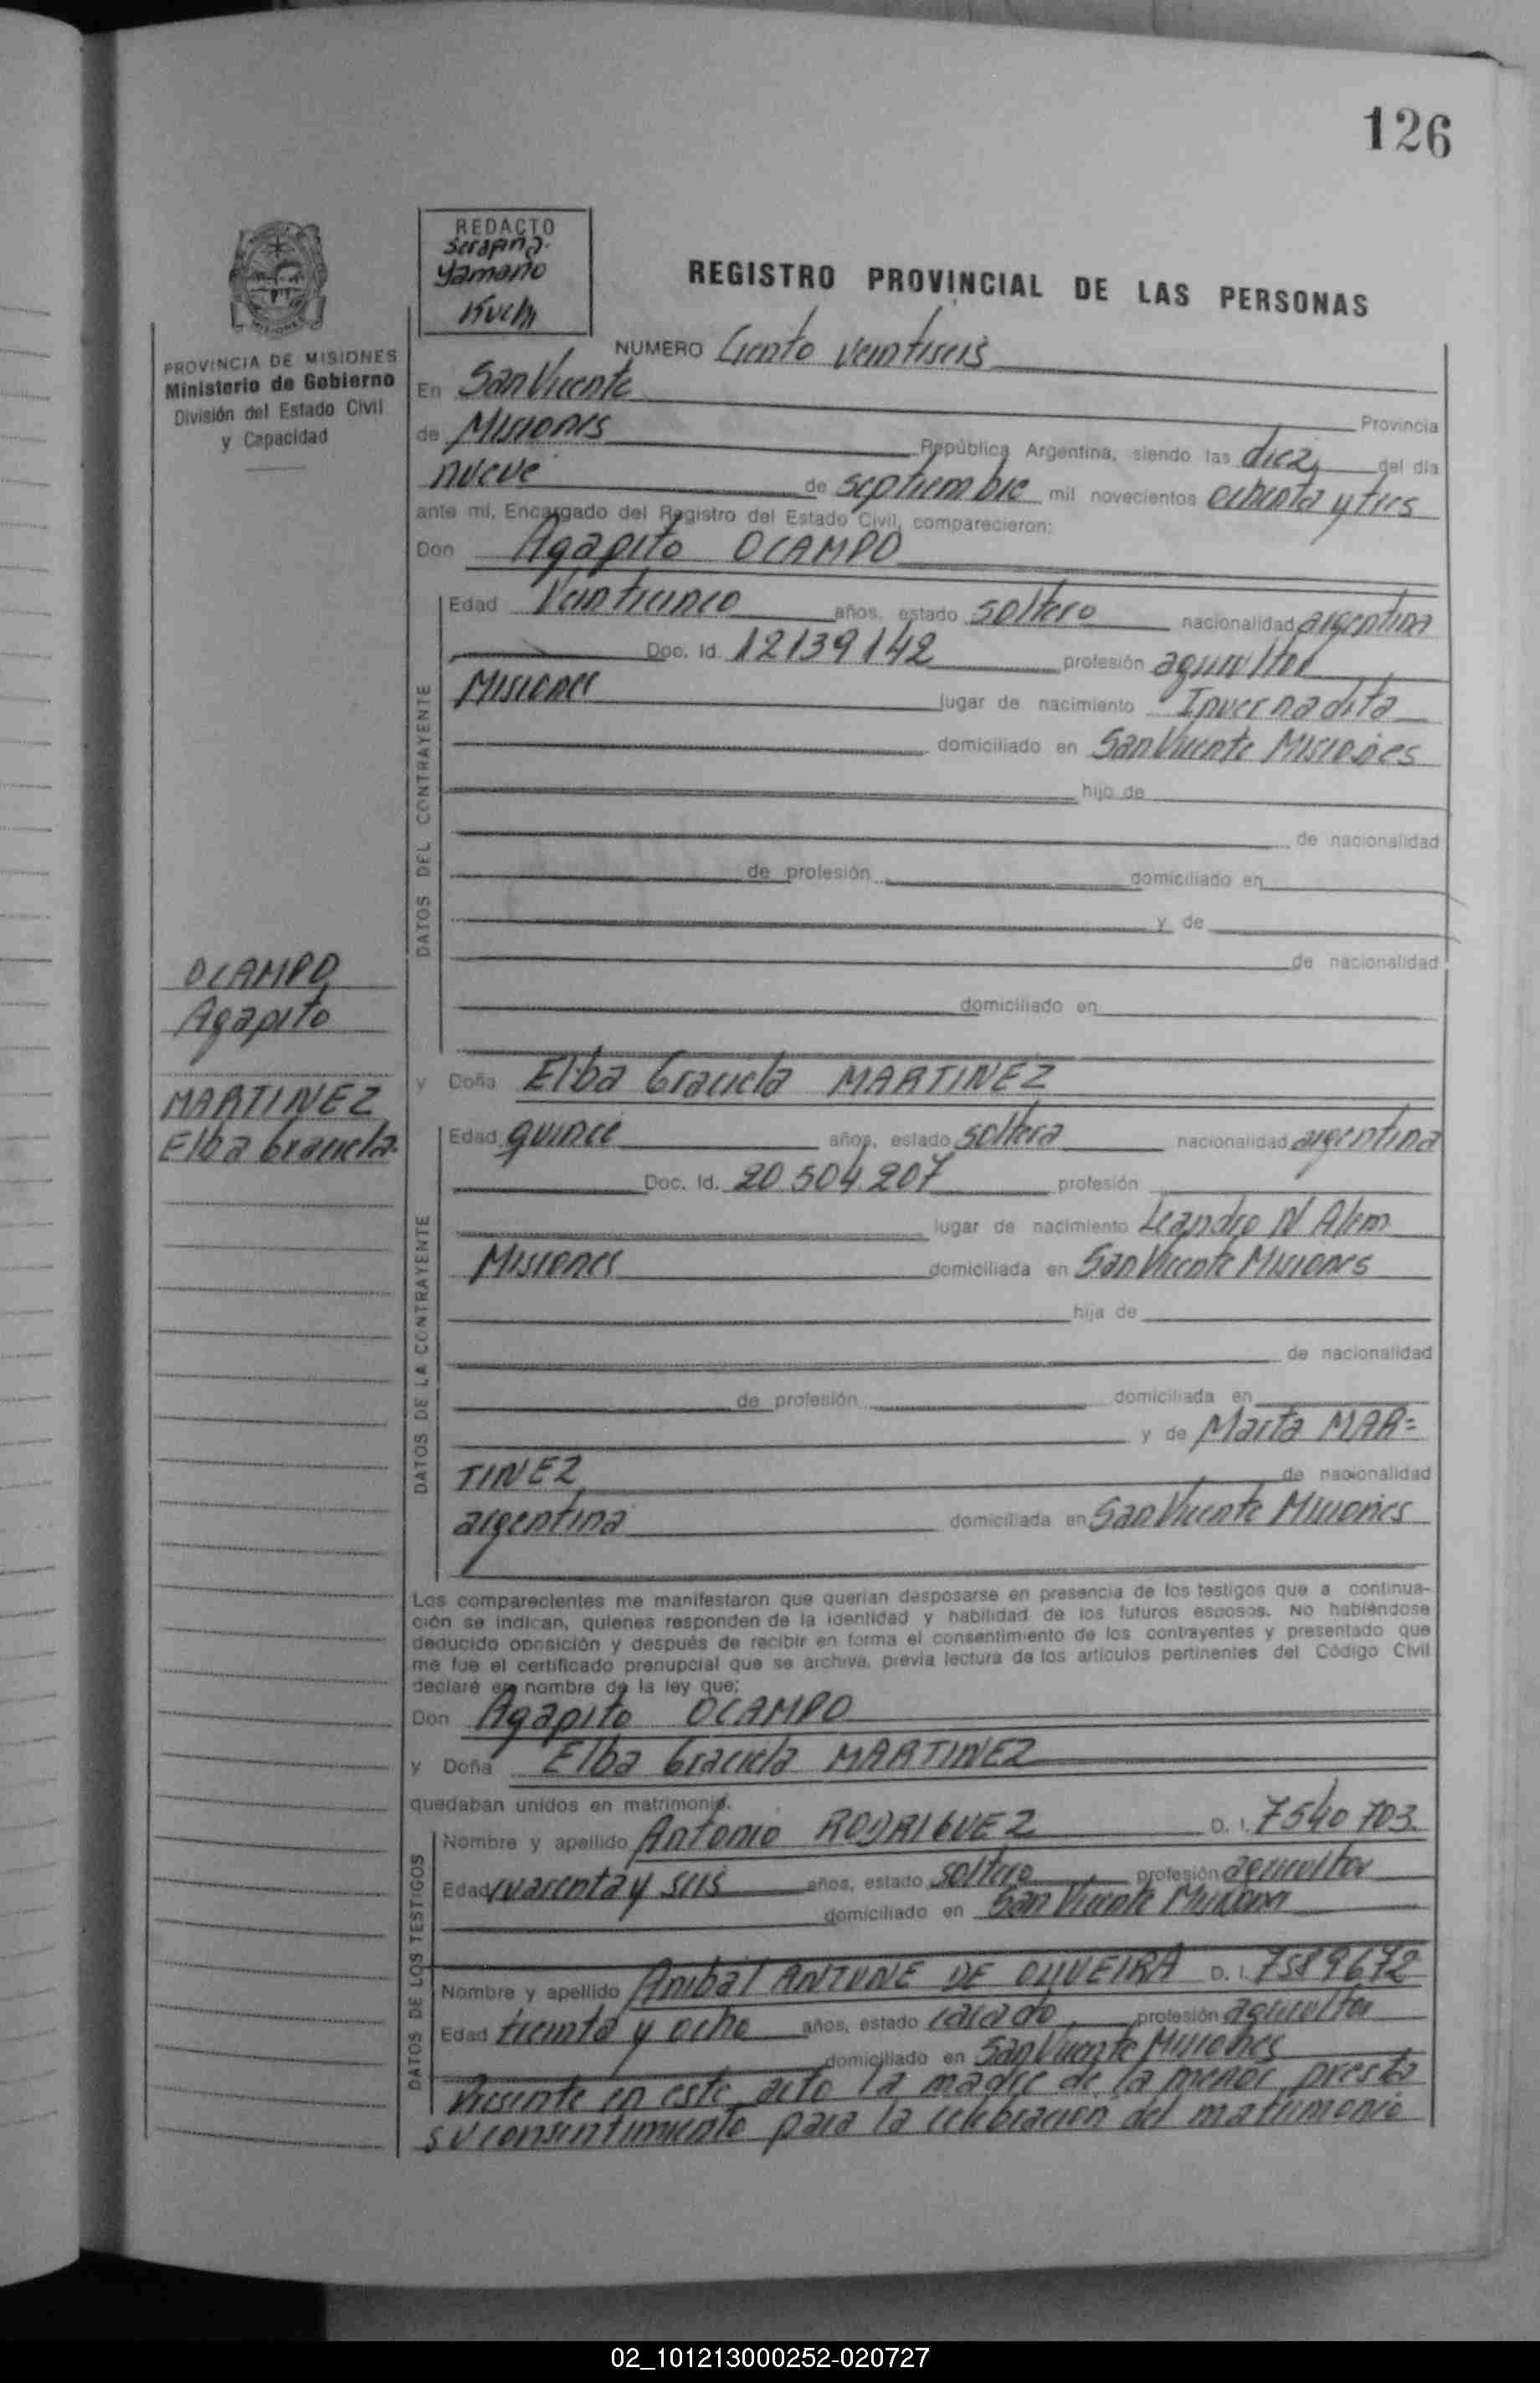 126
REDACTO
Serapina
Yamano
REGISTRO PROVINCIAL DE LAS PERSONAS
PROVINCIA DE MISIONES
Ministerio de Gobierno
División del Estado Civil
y Capacidad
NUMERO Ciento veintiseis
En San Vicente Provincia
de Misiones República Argentina, siendo las diez del día
nueve de septiembre mil novecientos ochenta y tres
ante mí, Encargado del Registro del Estado Civil, comparecieron:
Don Agapito OCAMPO
DATOS DEL CONTRAYENTE
Edad Veinticinco años, estado soltero nacionalidad argentina
Doc. Id. 12139142 profesión agricultor
Misiones lugar de nacimiento Invernadita
domiciliado en San Vicente Misiones
hijo de
de nacionalidad
de profesión domiciliado en
y de
de nacionalidad
domiciliado en
OCAMPO
Agapito
MARTINEZ
Elba Graciela
y Doña Elba Graciela MARTINEZ
DATOS DE LA CONTRAYENTE
Edad quince años, estado soltera nacionalidad argentina
Doc. Id. 20.504.207 profesión
lugar de nacimiento Leandro N Alem
Misiones domiciliada en San Vicente Misiones
hija de
de nacionalidad
de profesión domiciliada en
y de Marta MAR=
TINEZ de nacionalidad
argentina domiciliada en San Vicente Misiones
Los comparecientes me manifestaron que querían desposarse en presencia de los testigos que a continua-
ción se indican, quienes responden de la identidad y habilidad de los futuros esposos. No habiéndose
deducido oposición y después de recibir en forma el consentimiento de los contrayentes y presentado que
me fue el certificado prenupcial que se archiva, previa lectura de los artículos pertinentes del Código Civil
declaré en nombre de la ley que;
Don Agapito OCAMPO
y Doña Elba Graciela MARTINEZ
quedaban unidos en matrimonio.
DATOS DE LOS TESTIGOS
Nombre y apellido Antonio RODRIGUEZ D. I. 7540703
Edad cuarenta y seis años, estado soltero profesión agricultor
domiciliado en San Vicente Misiones
Nombre y apellido Anibal ANTUNE DE OLIVEIRA D. I. 7589672
Edad treinta y ocho años, estado casado profesión agricultor
domiciliado en San Vicente Misiones
Presente en este acto la madre de la menor presta
su consentimiento para la celebracion del matrimonio
02_101213000252-020727